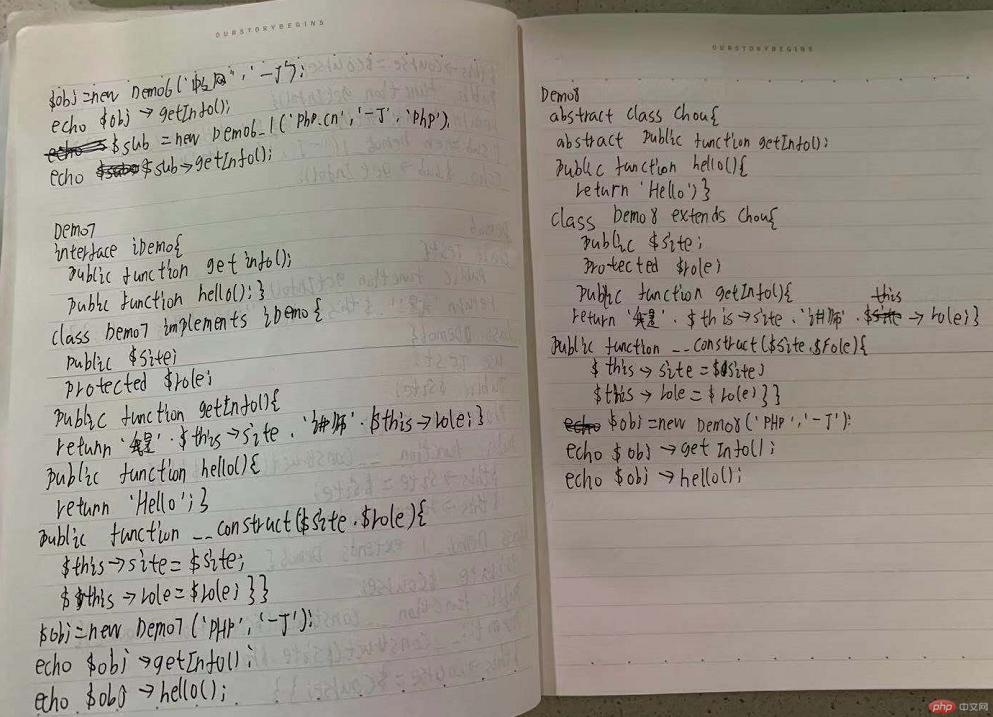 OURSTORYBEGINS
$obj=new Demo6('中文网','-J');
echo $obj→getInfo();
$sub=new Demo6_1('PHP.cn','-J','PHP');
echo $sub→getInfo();
Demo7
interface iDemo{
public function getinfo();
public function hello();}
class Demo7 implements iDemo{
public $site;
protected $role;
public function getInfo(){
return '我是'.$this→site.'讲师'.$this→role;}
public function hello(){
return 'Hello';}
public function __construct($site.$role){
$this→site=$site;
$this→role=$role;}}
$obj=new Demo7('PHP','-J');
echo $obj→getInfo();
echo $obj→hello();
OURSTORYBEGINS
Demo8
abstract class Chou{
abstract public function getInfo();
public function hello(){
return 'Hello';}
class Demo8 extends Chou{
public $site;
protected $role;
public function getInfo(){
return '我是'.$this→site.'讲师'.$this→role;}
public function __construct($site.$role){
$this→site=$site;
$this→role=$role;}}
$obj=new Demo8('PHP','-J');
echo $obj→getInfo();
echo $obj→hello();
php 中文网